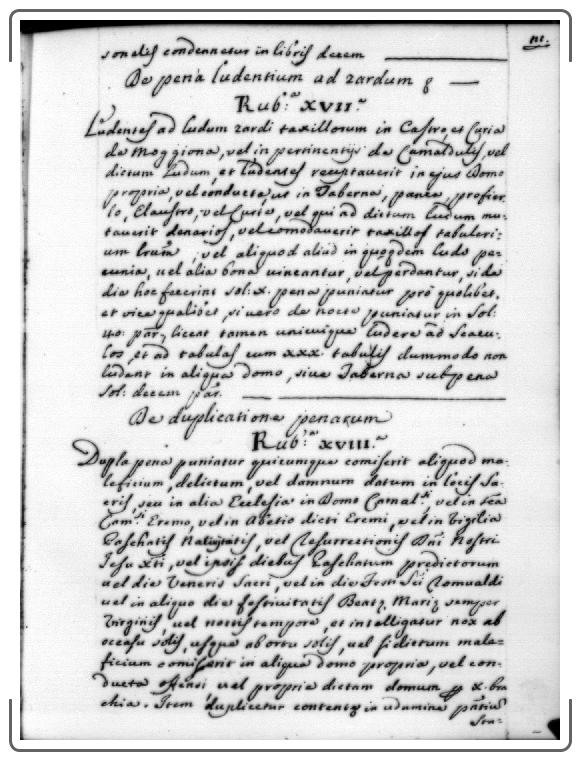 111.
sonalis condennetur in libris decem
De pena ludentium ad zardum 8
Rub.ª XVII.ª
Ludentes ad ludum zardi taxillorum in Castro, et Curia
de Moggiona, vel in pertinentijs de Camaldulis, vel
dictum Ludum, et ludentes receptaverit in ejus Domo
propria, vel conducta, ut in Taberna, panca, profier
lo, Claustro, vel Curia, vel qui ad dictum ludum mu-
tuaverit denarios, vel comodaverit taxillos tabuleri-
um, vel aliquod aliud in quoddam ludo pe-
cunia, vel alia bona vincantur, vel perdantur, si de
die hoc fecerint sol: X. pena puniatur pro quolibet,
et vice qualibet, si vero de nocte puniatur in Sol:
par; liceat tamen unicuique ludere ad Scacu-
los, et ad tabulas cum XXX tabulis dummodo non
ludant in aliqua domo, sive Taberna sub pena
Sol: decem par.
De duplicatione penarum
Rub.ª XVIII.ª
Dupla pena puniatur quicumque comiserit aliquod ma-
leficium, delictum, vel damnum datum in locis Sa-
cris, seu in alia Ecclesia in Domo Camal.si vel in
Cam.si Eremo, vel in Abetio dicti Eremi, vel in Vigilia
Paschatis Nativitatis, vel Resurrectionis Dni Nostri
Jesu Xti, vel ipsis diebus Paschatum predictorum
vel die Veneris Sacri, vel in die Festi Sci Romualdi
vel in aliquo die festivitatis Beatę Marię semper
Virginis, vel noctis tempore, et intelligatur nox ab
occasu solis, usque ab ortu solis, vel si dictum male-
ficium comiserit in aliqua domo propria, vel con-
ducta offensi vel propria dictam domum p X. bra
chia. Item duplicetur contentę in udamina pntiu
Sta-